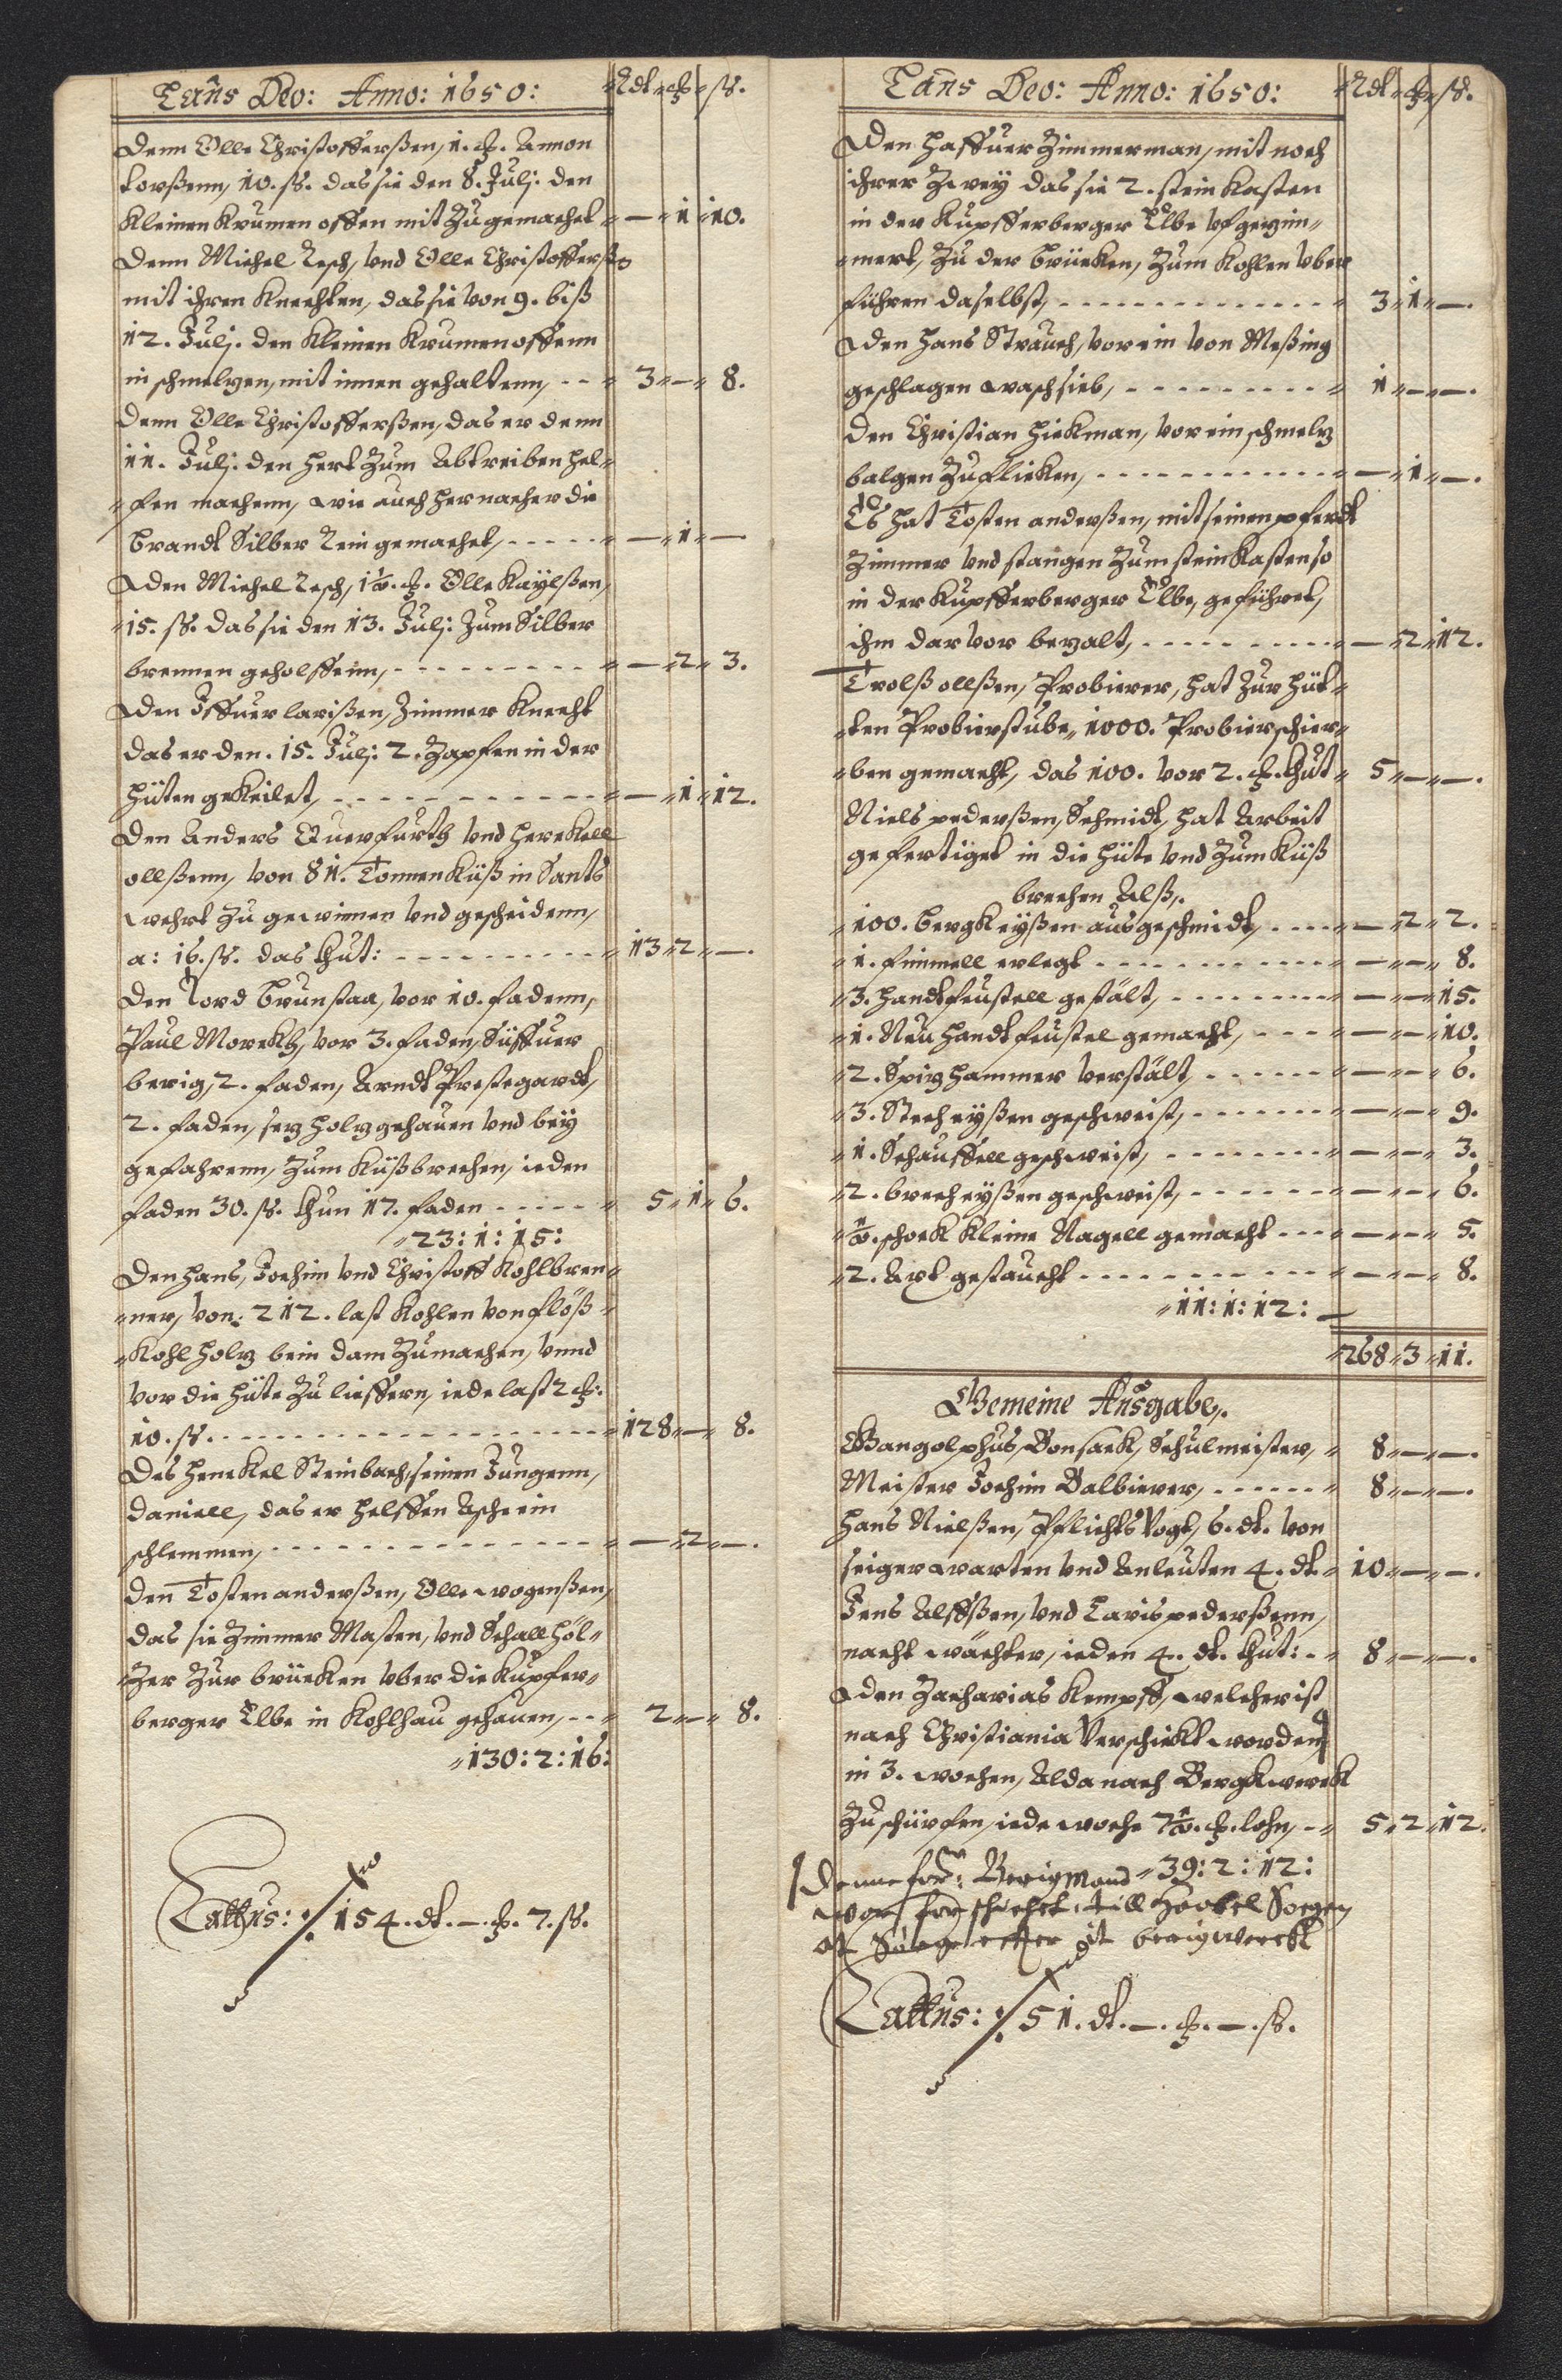 Laus Deo: Anno: 1650: Rdt ß.
Denn Olle Christofferßen, 1. Annon
torßenn, 10. ß. das sie den 8. Julj. den
Kleinen Krumen offen mit Zugemachet — 1 10.
Denn Michel Resch, Und Olle Christofferß
mit ihren Knechten, das sie von 9. biß
12. Julj. den Kleinen Krumen offenn
in schmelzen, mit innen gehaltenn, 3 — 8.
Denn Olle Christofferßen, das er denn
11. Julj: den Hert Zum Abtreiben hel
fen machenn, wie auch hernacher die
Brandt Silber Rein gemachet, — 1 —
Den Michel Resch, 1½. Olle Kaylßen,
15. ß. das sie den 13. Julj: Zum Silber
brennen geholffenn, — 2 3.
Den Iffuer larißen, Zimmer Knecht
das er den. 15. Julj: 2. Zapfen in der
Hüten geKeilet, — 1 12.
Den Anders Querfurth Und
ollßenn, Von 81. Tonnen Küß in Sants
wehrt Zu gewinnen Und gescheidenn,
a: 16. ß. das thut: 13 2 —.
Den Tord Brunstaa, vor 10. fadenn,
Paul Morekh, vor 3. faden, Siffuer
berig, 2. faden, Arndt Prestegardt,
2. faden, sez holz gehauen Und bey
gefahrenn, Zum Küßbrechen, ieden
faden 30. ß. thun 17. faden 5 1 6.
23: 1: 15:
Den Hans, Jochim Und Christoff Kohlbren
ner, Von: 212. last Kohlen Von flöß
Kohl holz beim dam Zumachen, Unnd
Vor die Hüte Zu lieffern, iede last 2
10. ß. 128 — 8.
Des Henckel Steinbach, seinen Jungenn,
Daniell, das er helffen Asche ein
schlemmen, — 2 —.
Den Tosten anderßen, Olle wogenßen,
das sie Zimmer Masten, Und Schallhöl
Zer Zur brücken Uber die Kupfer
berger Elbe in Kohlhau gehauen, 2 — 8.
130: 2: 16:
Lattus: 154. dt. —. 7. ß.
Laus Deo: Anno: 1650: Rdt ß.
Den Haffuer Zimmerman, mit noch
ihrer Zwey das sie 2. stein Kasten
in der Kupfferberger Elbe Ufgezim
mert, Zu der Brücken, Zum Kohlen Uber
führen daselbst, 3 1 —.
Den Hans Strauch, vor ein von Meßing
geschlagen waschsieb, 1 — —.
Den Christian Hickman, vor ein schmelz
balgen Zuflicken, — 1 —.
Es hat Tosten anderßen, mit seinen pferdt
Zimmer Und stangen Zum steinkasten so
in der Kupfferberger Elbe, geführet,
ihm darvor bezalt, — 2 12.
Trolß ollßen, Probierer, hat Zur hüt
ten Probierstube, 1000. Probierschier
ben gemacht, das 100. vor 2. thut 5 — —.
Niels pederßen, Schmidt, hat Arbeit
gefertiget in die Hüte Und Zum Küß
brechen Alß,
100. bergkeyßen ausgeschmidt, — 2 2.
1. fimmell erlegt — — 8.
3. Handtfeustell gestält, — — 15.
1. Neu Handtfeustel gemacht, — — 10.
2. Spizhammer Verstält, — — 6.
3. Stecheyßen geschweist, — — 9.
1. Schauffell geschweist, — — 3.
2. brecheyßen geschweist, — — 6.
½. schock Kleine Nagell gemacht — — 5.
2. Axt gestaucht — — 8.
11: 1: 12:
268 3 11.
Gemeine Ausgabe,
Gangolphus Bonsack, Schulmeister, 8 — —.
Meister Jochim Balbierer, 8 — —.
Hans Nielßen, Pflichts Vogt, 6. dt. Von
seiger warten Und Anleuten 4. dt. 10 — —.
Jens Alffßen, Und Laris pederßenn,
nacht wächter, ieden 4. dt. thut: 8 — —.
Den Zacharias Kempff, welcher ist
nach Christiania Verschickt worden
in 3. wochen, Alda nach Bergkwerck
Zuschürfen, iede woche 7½. lohn, 5 2 12.
Denne for: Berigmand 39: 2: 12:
war for schichet till
berigwerck
Lattus: 51. dt. —. —. ß.